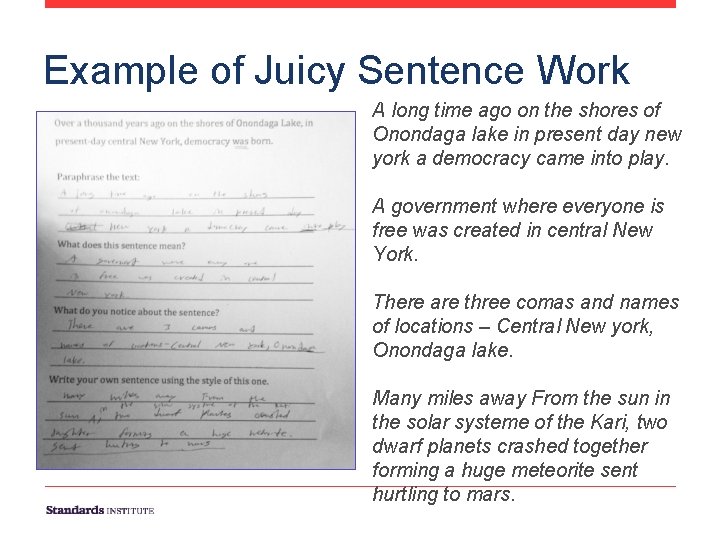 Example of Juicy Sentence Work
Over a thousand years ago on the shores of Onondaga Lake, in
present-day central New York, democracy was born.
Paraphrase the text:
A long time ago on the shores
of onondaga lake in present day
new york a democracy came into play
What does this sentence mean?
A goverment were every one
is free was created in central
New york.
What do you notice about the sentence?
There are 3 comas and
names of locations-Central New york, Onondaga
lake.
Write your own sentence using the style of this one.
many miles away From the
sun in the solar systeme of the Kari
two dwarf planets crashed
forming a huge meteorite.
sent hurtling to mars.
A long time ago on the shores of
Onondaga lake in present day new
york a democracy came into play.
A government where everyone is
free was created in central New
York.
There are three comas and names
of locations – Central New york,
Onondaga lake.
Many miles away From the sun in
the solar systeme of the Kari, two
dwarf planets crashed together
forming a huge meteorite sent
hurtling to mars.
Standards INSTITUTE